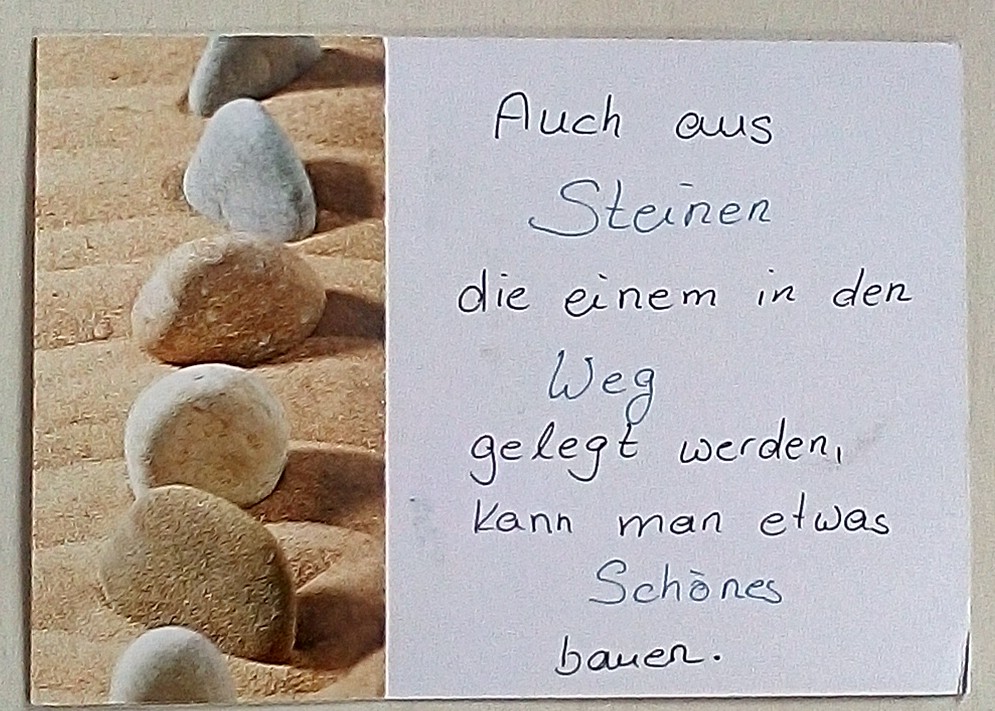 Auch aus
Steinen
die einem in den
Weg
gelegt werden,
kann man etwas
Schönes
bauen.